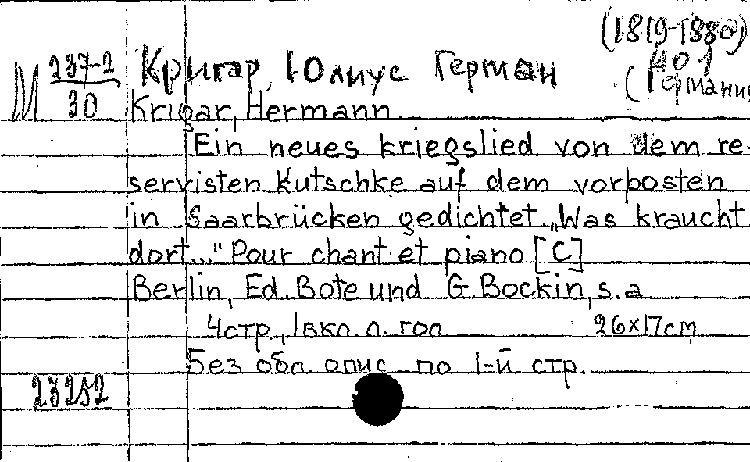 (1819-1880)
М 237-2/30 Кригар, Юлиус Герман
(Германия
Krigar, Hermann.
Ein neues kriegslied von dem re-
servisten Kutschke auf dem vorposten
in Saarbrücken gedichtet „Was kraucht
dort..." Pour chant et piano [C]
Berlin, Ed. Bote und G. Bockin, s.a
4стр., 1вкл. л. гол 26x17cm
Без обл. опис по 1-й стр.
23252